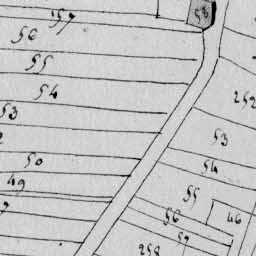 57
58
56
55
54
252
53
53
54
50
49
55
56
46
57
258